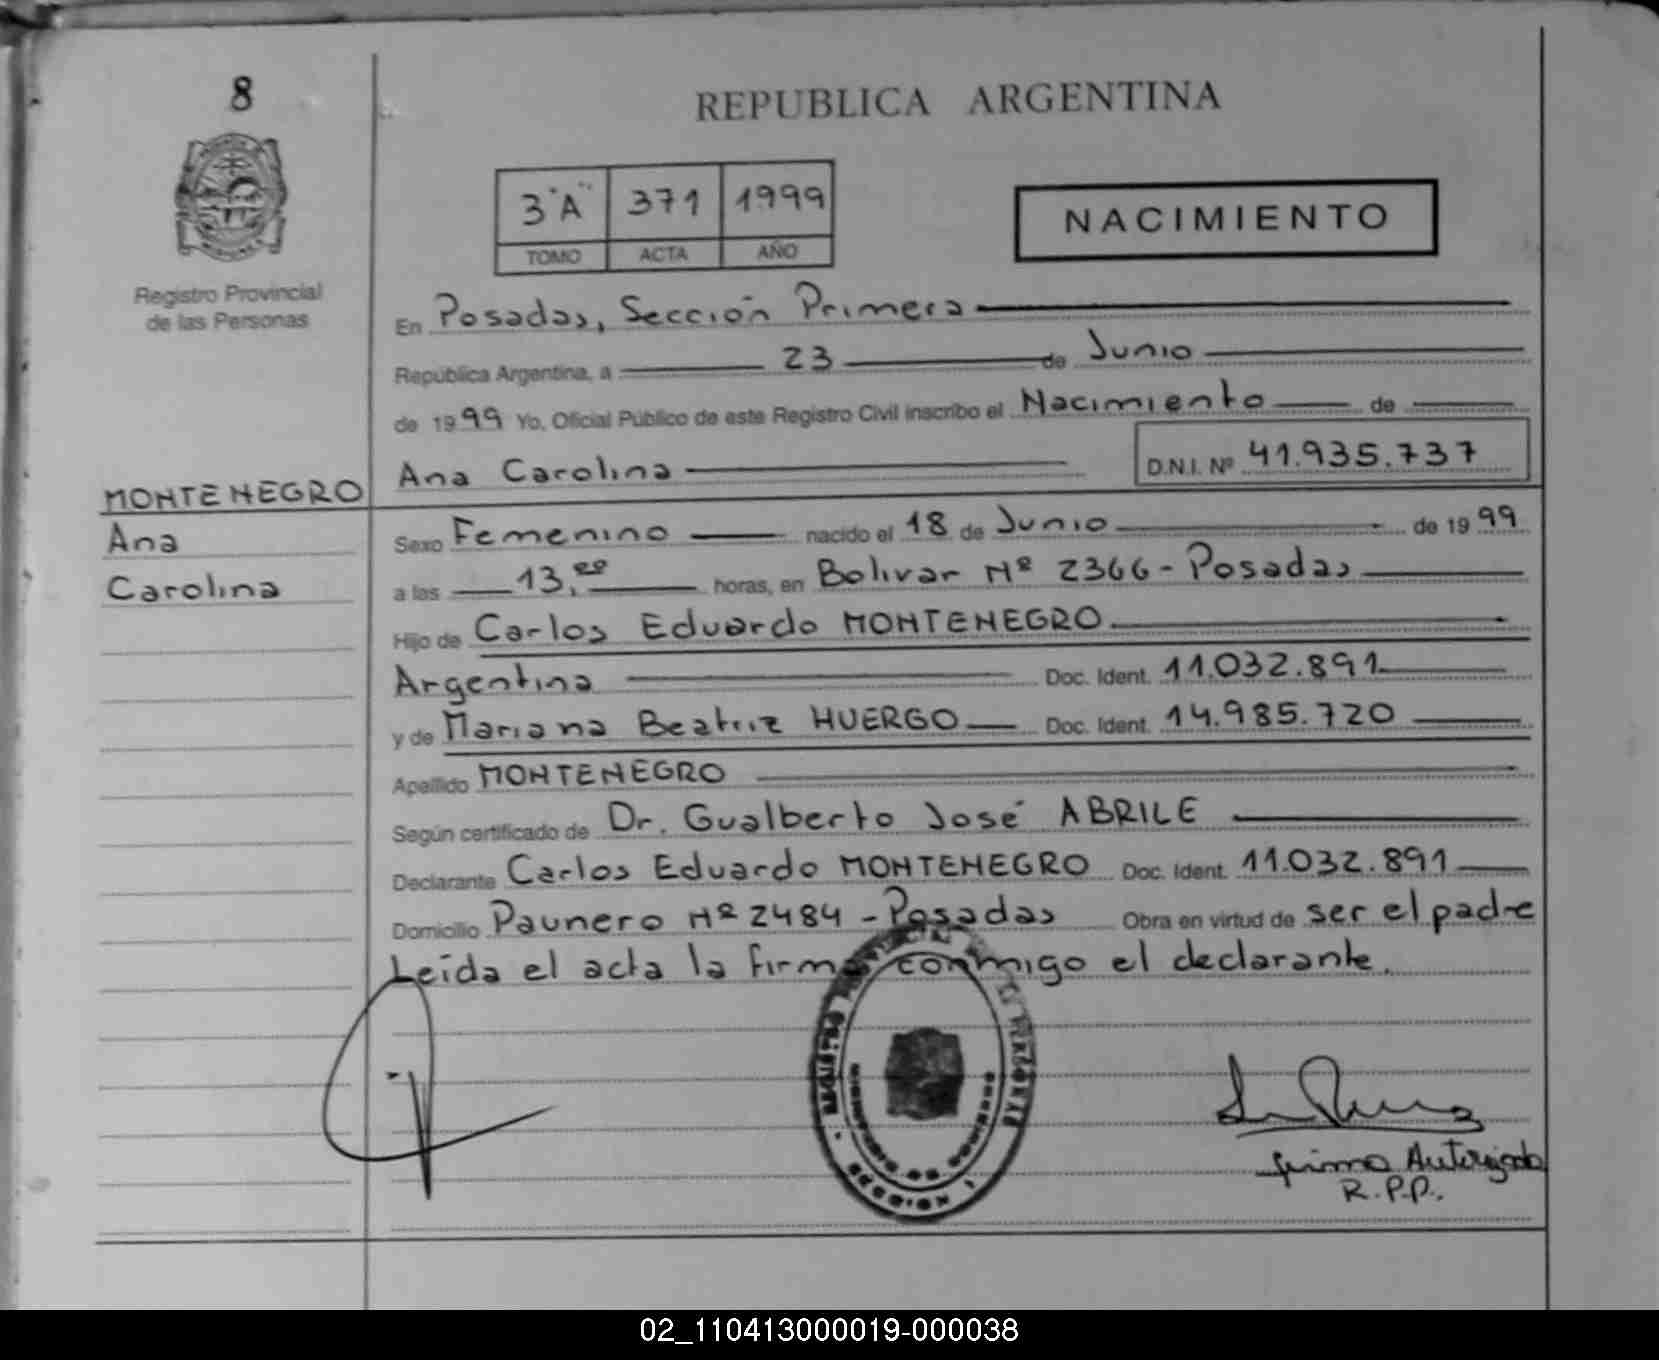 8
REPUBLICA ARGENTINA
3"A" 371 1999
TOMO ACTA AÑO
NACIMIENTO
Registro Provincial
de las Personas
En Posadas, Sección Primera
República Argentina, a 23 de Junio
de 1999 Yo, Oficial Público de este Registro Civil inscribo el Nacimiento de
Ana Carolina D.N.I. Nº 41.935.737
MONTENEGRO
Ana
Carolina
Sexo Femenino nacido el 18 de Junio de 1999
a las 13, horas, en Bolivar Nº 2366 - Posadas
Hijo de Carlos Eduardo MONTENEGRO
Argentina Doc. Ident. 11.032.891
y de Mariana Beatriz HUERGO Doc. Ident. 14.985.720
Apellido MONTENEGRO
Según certificado de Dr. Gualberto José ABRILE
Declarante Carlos Eduardo MONTENEGRO Doc. Ident. 11.032.891
Domicilio Paunero Nº 2484 - Posadas Obra en virtud de ser el padre
Leída el acta la firma conmigo el declarante.
Firma Autorizada
R.P.P.
02_110413000019-000038